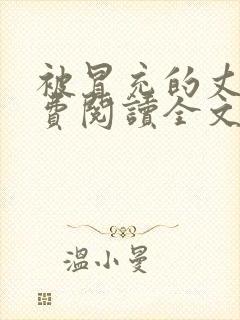 被冒充的丈
費閱讀全文
溫小曼